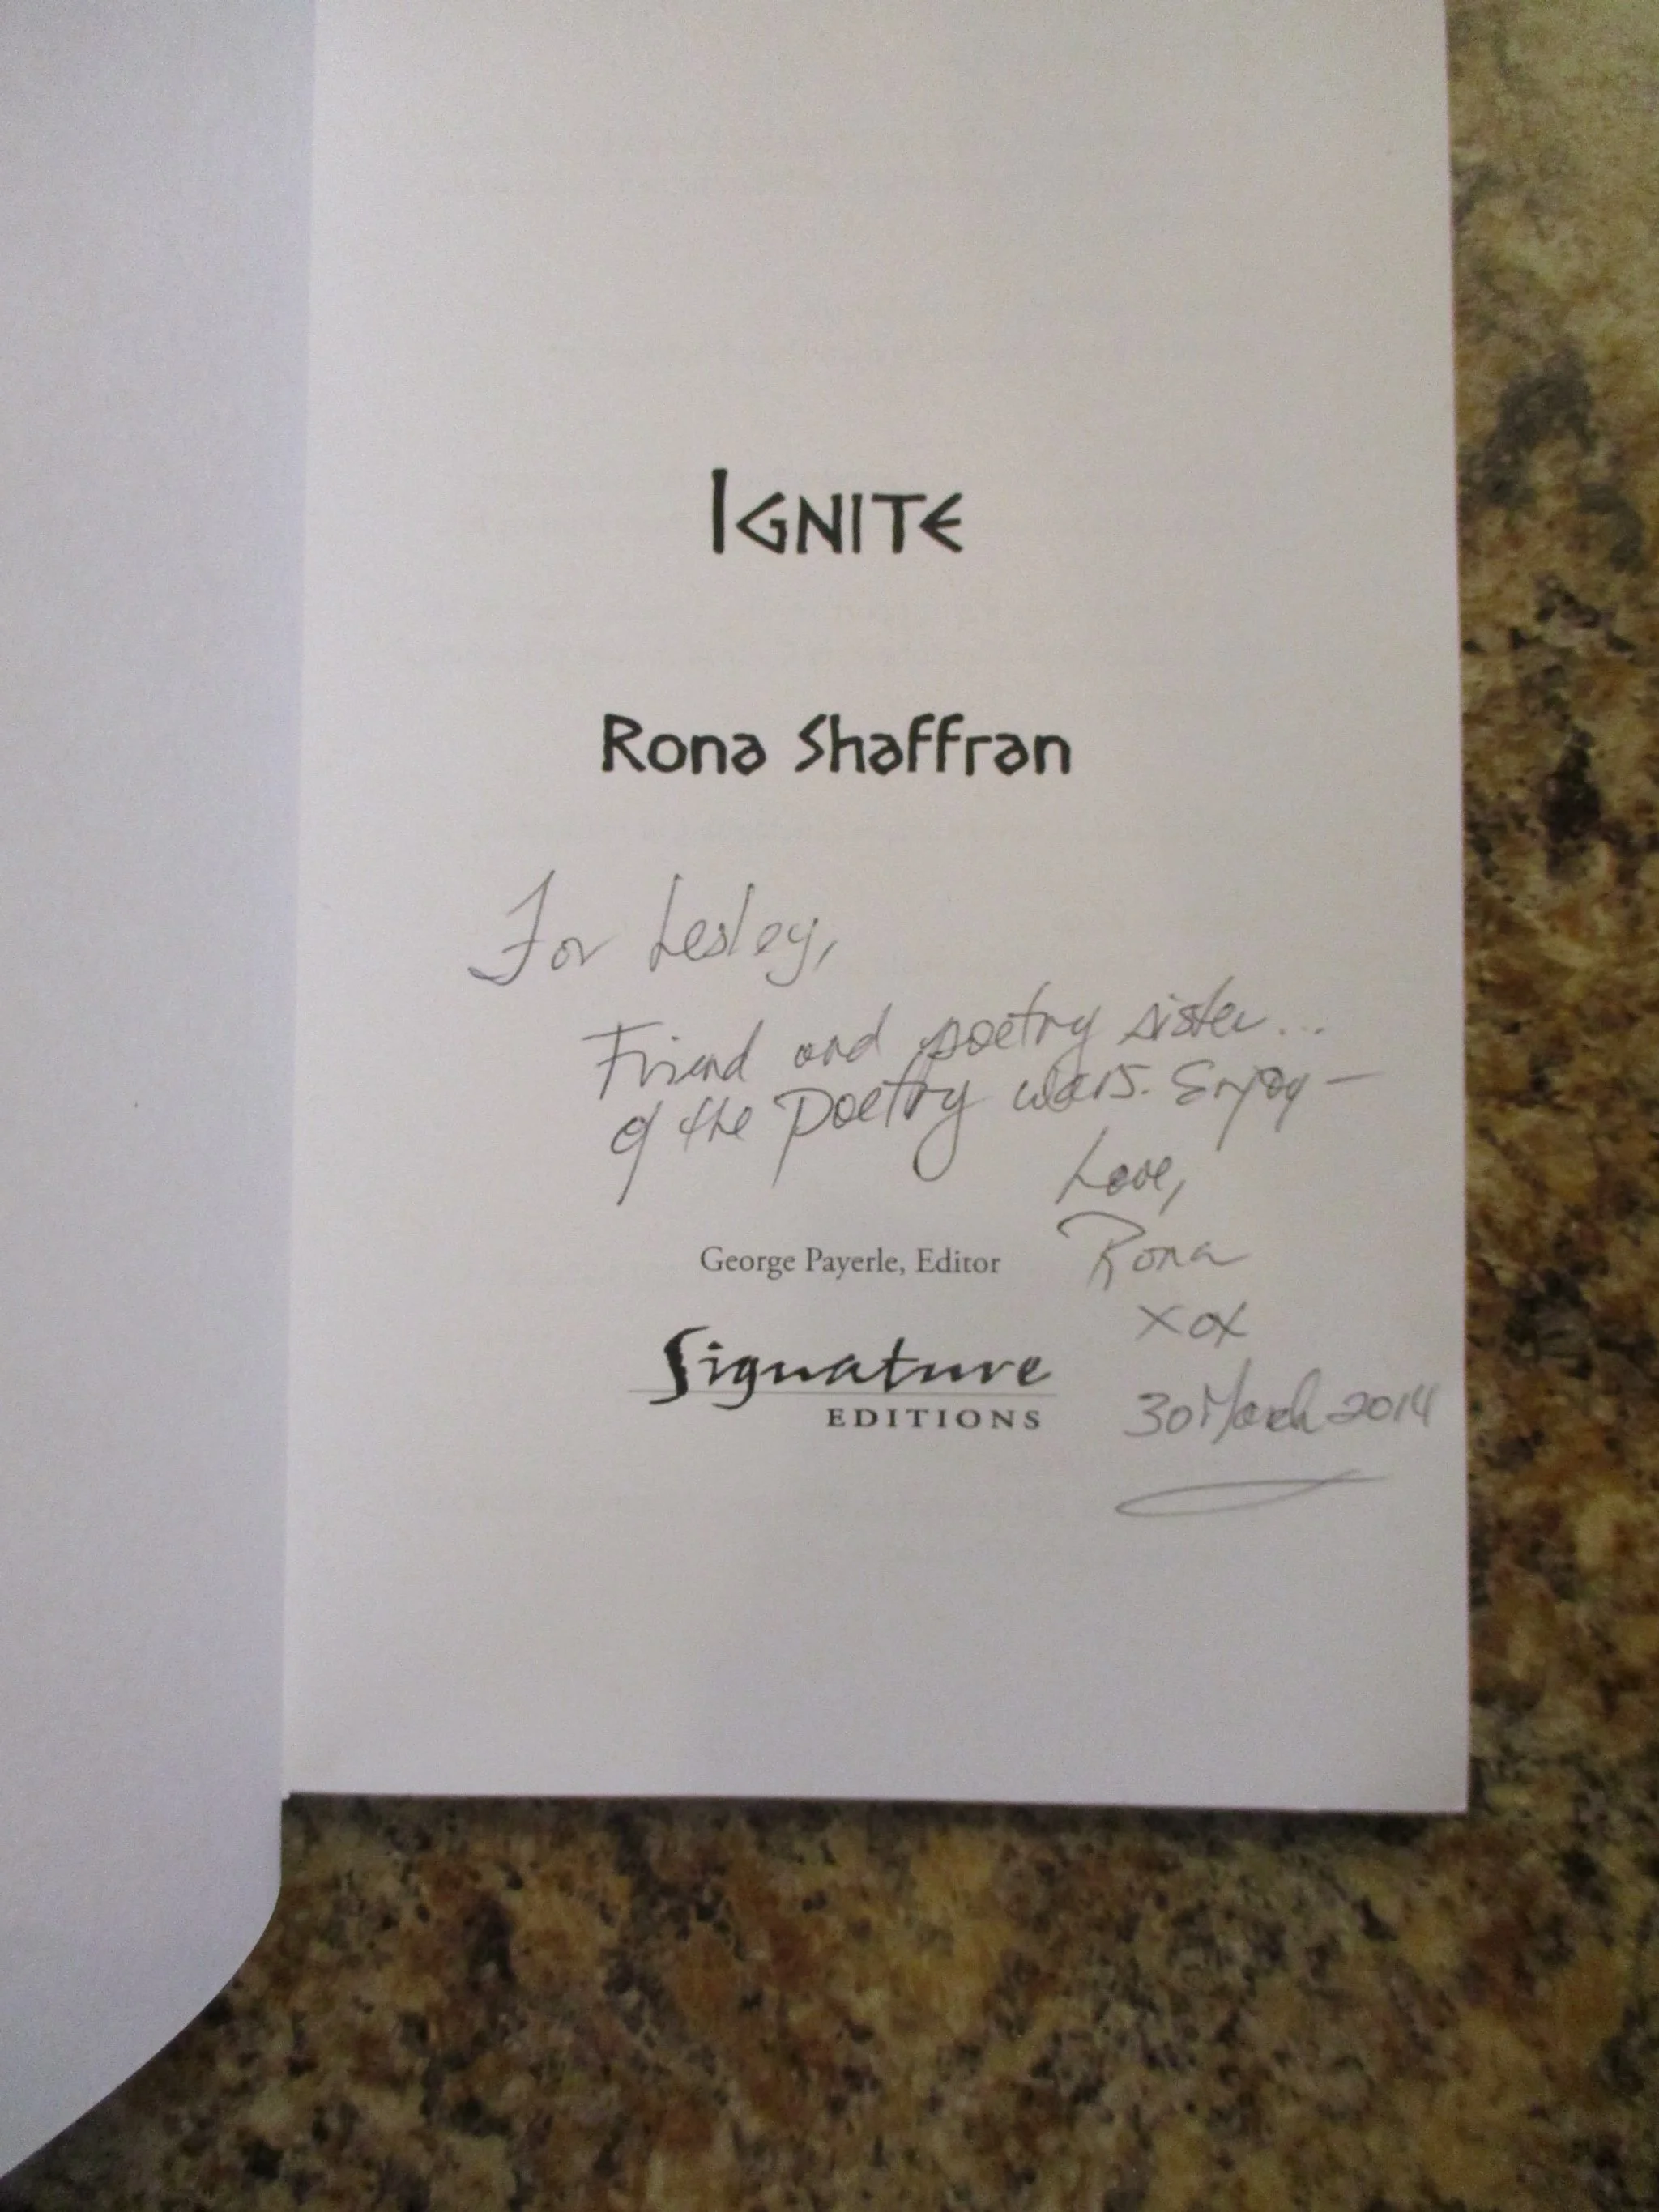 IGNITE
Rona Shaffran
For Lesley,
Friend and poetry sister...
of the poetry wars. Enjoy —
Love,
George Payerle, Editor
Rona
xox
Signature
EDITIONS
30 March 2014